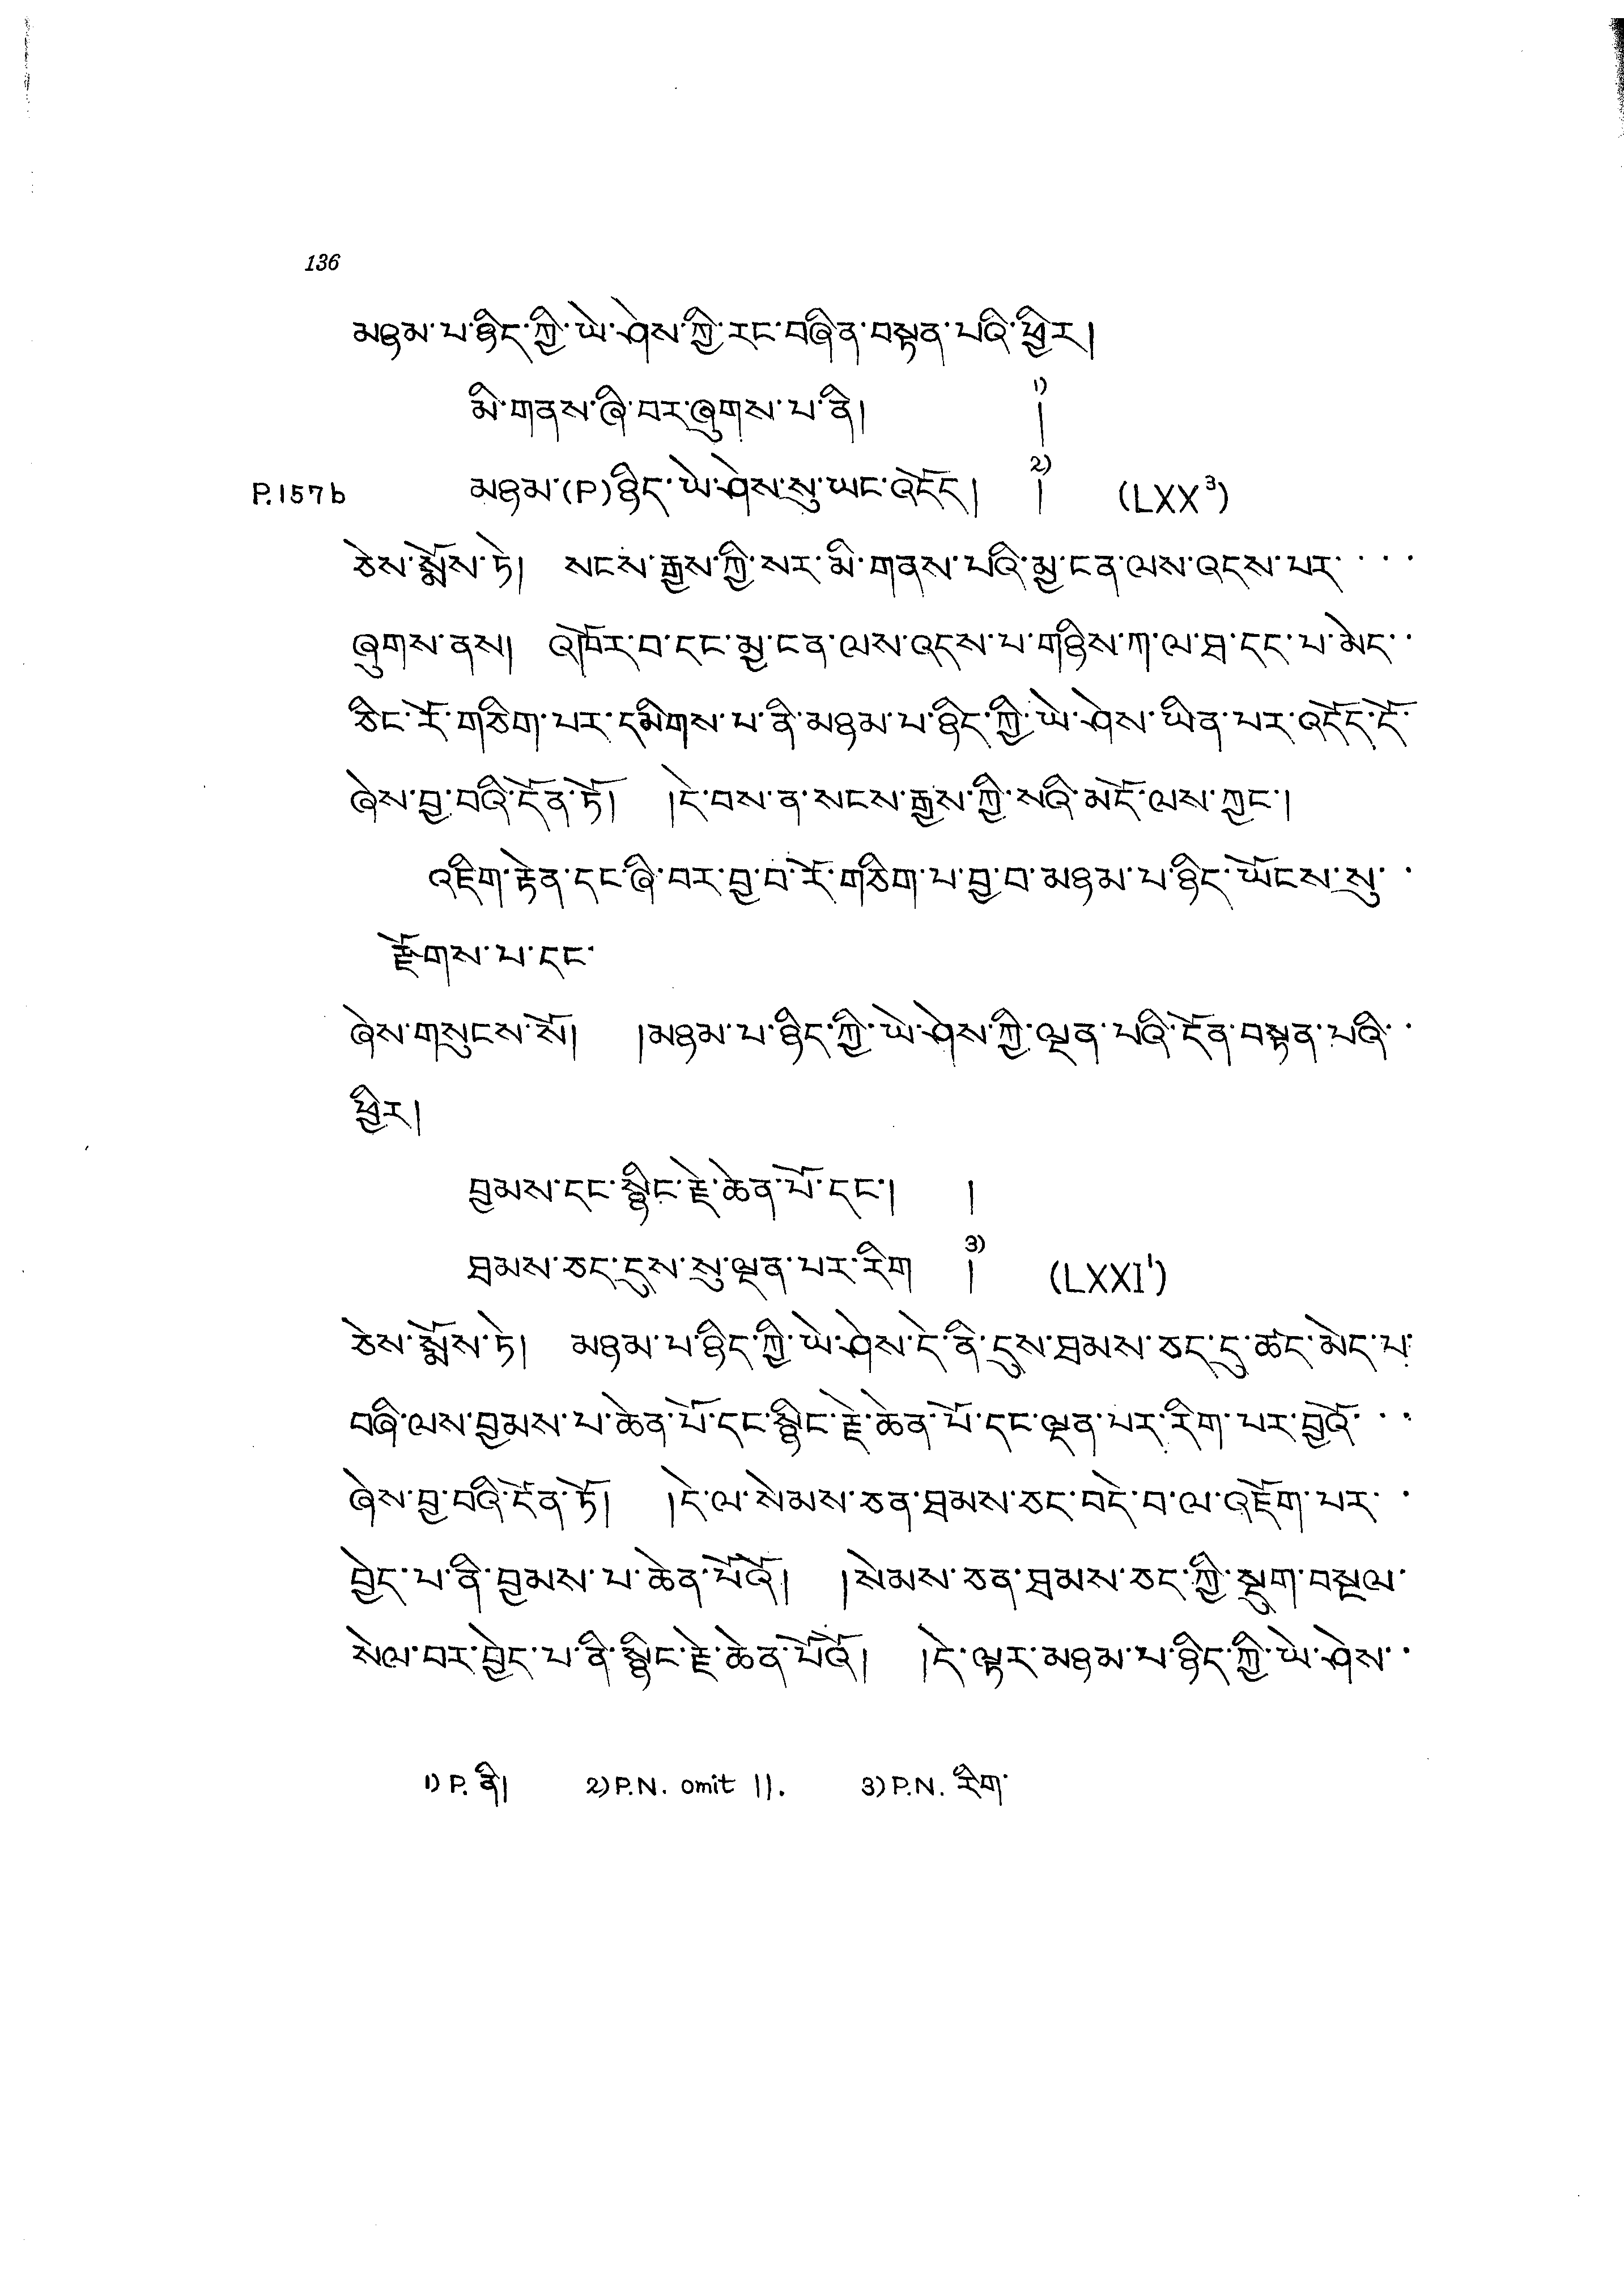 136
མཉམ་པ་ཉིད་ཀྱི་ཡེ་ཤེས་ཀྱི་རང་བཞིན་བསྟན་པའི་ཕྱིར།
མི་གནས་ཞི་བར་ཞུགས་པ་ནི། 1) །
P.157b མཉམ་(P)ཉིད་ཡེ་ཤེས་སུ་ཡང་འདོད། 2) ། (LXX³)
ཅེས་སྨོས་ཏེ། སངས་རྒྱས་ཀྱི་སར་མི་གནས་པའི་མྱ་ངན་ལས་འདས་པར་
ཞུགས་ནས། འཁོར་བ་དང་མྱ་ངན་ལས་འདས་པ་གཉིས་ཀ་ལ་ཐ་དད་པ་མེད་
ཅིང་རོ་གཅིག་པར་དམིགས་པ་ནི་མཉམ་པ་ཉིད་ཀྱི་ཡེ་ཤེས་ཡིན་པར་འདོད་དོ་
ཞེས་བྱ་བའི་དོན་ཏོ། །དེ་བས་ན་སངས་རྒྱས་ཀྱི་སའི་མདོ་ལས་ཀྱང་།
འཇིག་རྟེན་དང་ཞི་བར་བྱ་བ་རོ་གཅིག་པ་བྱ་བ་མཉམ་པ་ཉིད་ཡོངས་སུ་
རྫོགས་པ་དང་
ཞེས་གསུངས་སོ། །མཉམ་པ་ཉིད་ཀྱི་ཡེ་ཤེས་ཀྱི་ལྡན་པའི་དོན་བསྟན་པའི་
ཕྱིར།
བྱམས་དང་སྙིང་རྗེ་ཆེན་པོ་དང་། །
ཐམས་ཅད་དུས་སུ་ལྡན་པར་རིག 3) ། (LXXI¹)
ཅེས་སྨོས་ཏེ། མཉམ་པ་ཉིད་ཀྱི་ཡེ་ཤེས་དེ་ནི་དུས་ཐམས་ཅད་དུ་ཚད་མེད་པ་
བཞི་ལས་བྱམས་པ་ཆེན་པོ་དང་སྙིང་རྗེ་ཆེན་པོ་དང་ལྡན་པར་རིག་པར་བྱའོ་
ཞེས་བྱ་བའི་དོན་ཏོ། །དེ་ལ་སེམས་ཅན་ཐམས་ཅད་བདེ་བ་ལ་འཇོག་པར་
བྱེད་པ་ནི་བྱམས་པ་ཆེན་པོའོ། །སེམས་ཅན་ཐམས་ཅད་ཀྱི་སྡུག་བསྔལ་
སེལ་བར་བྱེད་པ་ནི་སྙིང་རྗེ་ཆེན་པོའོ། །དེ་ལྟར་མཉམ་པ་ཉིད་ཀྱི་ཡེ་ཤེས་
1) P. ནི། 2) P.N. omit ||. 3) P.N. རིག་